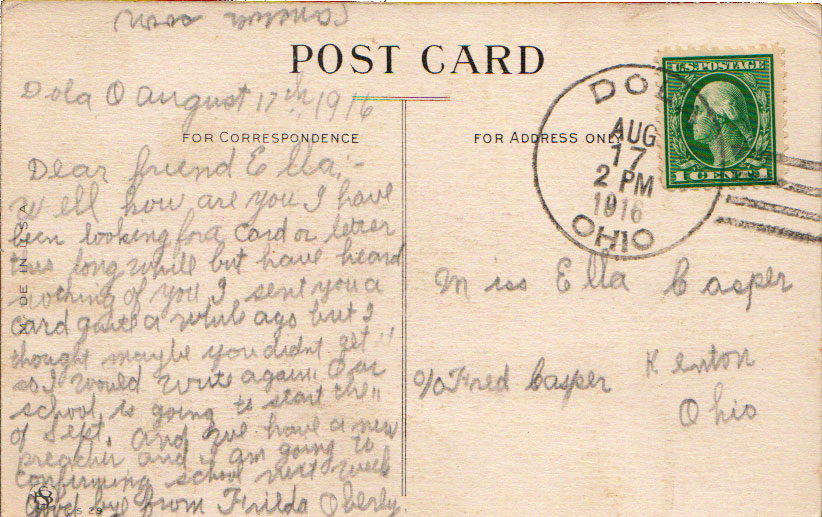 POST CARD
Dola O August 17th 1916
FOR CORRESPONDENCE
FOR ADDRESS ONLY
Dear friend Ella;-
Well how are you I have
been looking for a card or letter
this long while but have heard
nothing of you I sent you a
card quite a while ago but I
thought maybe you didnt get "
so I would write again. Our
school is going to start the "
of Sept. and we have a new
preacher and I am going to
confirming school next week
Good bye from Frieda Oberly.
answer soon
MADE IN U.S.A.
S 29
DOLA
AUG
17
2 PM
1916
OHIO
U.S. POSTAGE
1 CENT 1
Miss Ella Casper
c/o Fred Casper
Kenton
Ohio